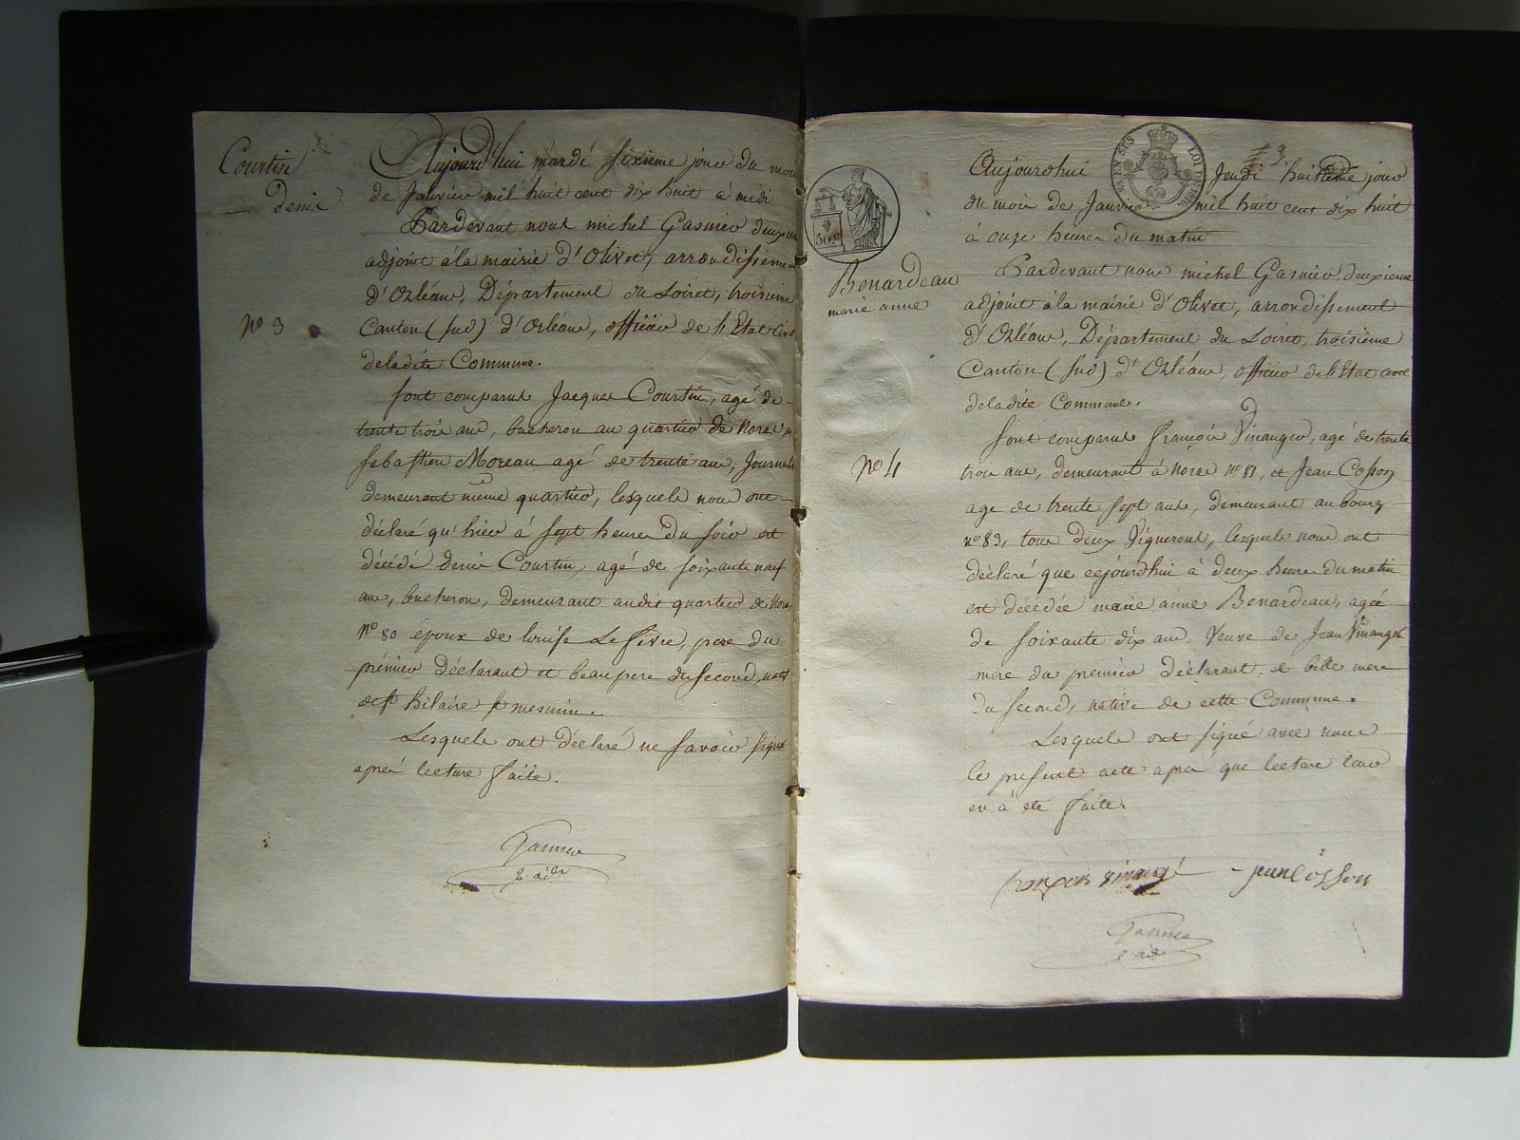 Courtin
denis
Nº 3
Aujourd'hui mardi sixieme jour du mois
de Janvier mil huit cent dix huit à midi
Pardevant nous michel Gasnier deuxieme
adjoint à la mairie d'Olivet, arrondissement
d'Orléans, Département du Loiret, troisieme
Canton (sud) d'Orléans, officier de l'Etat Civil
de ladite Commune.
Sont comparus Jacques Courtin, agé de
trente trois ans, bucheron au quartier de Noras et
Sebastien Moreau agé de trente ans, Journalier
demeurant même quartier, lesquels nous ont
déclaré qu'hier à sept heures du soir est
décédé denis Courtin, agé de soixante neuf
ans, bucheron, demeurant audit quartier de Noras
nº 80 époux de louise Lefevre, pere du
prémier déclarant et beaupere du second, natif
de St hilaire St mesmin.
Lesquels ont déclaré ne savoir signer
après lecture faite.
Gasnier
2 adt
EN SUS
LOI DU
3
Benardeau
marie anne
Nº 4
Aujourdhui Jeudi huitieme jour
du mois de Janvier mil huit cent dix huit
à onze heures du matin
Pardevant nous michel Gasnier deuxieme
adjoint à la mairie d'Olivet, arrondissement
d'Orléans, Département du Loiret, troisième
Canton (sud) d'Orléans, officier de l'Etat civil
de ladite Commune.
Sont comparus François Vinanger, agé de trente
trois ans, demeurant à Noras nº 81, et Jean Cosson
age de trente sept ans, demeurant au bourg
nº 83, tous deux Vignerons, lesquels nous ont
déclaré que cejourdhui à deux heures du matin
est décédée marie anne Benardeau, agée
de soixante dix ans, Veuve de Jean Vinanger
mere du premier déclarant, et belle mere
du second, native de cette Commune.
Lesquels ont signé avec nous
le present acte après que lecture leur
en à été faite.
françois vinangé jean cosson
Gasnier
2 adt